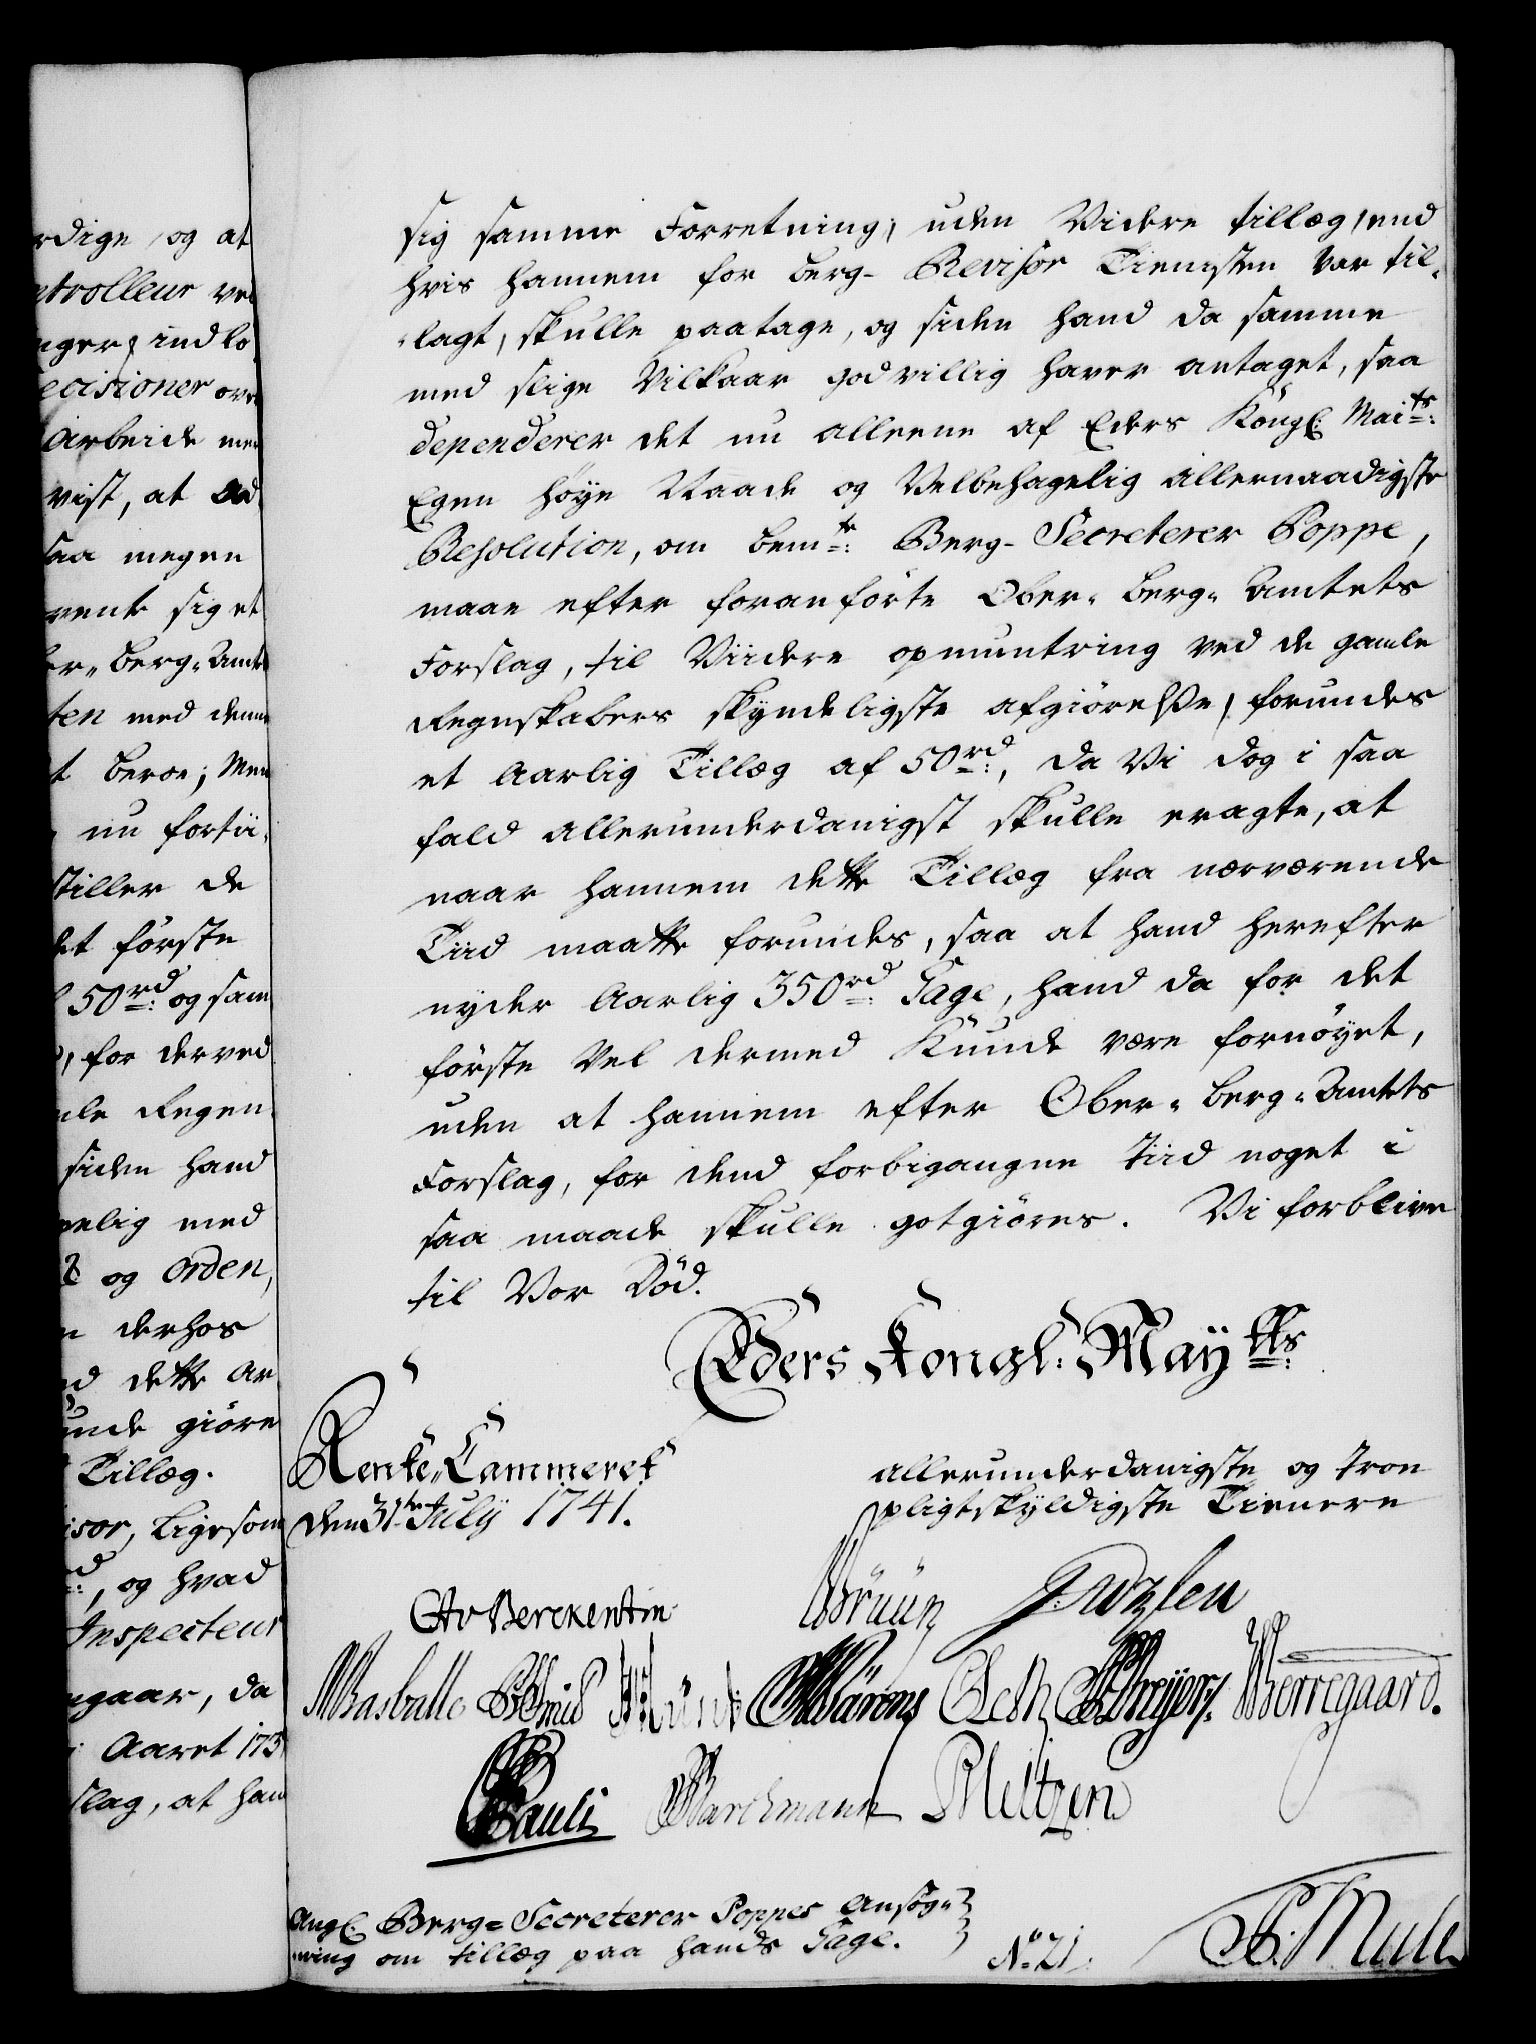 rdige, og at
ntrolleur ve
nger, indlo
ecisioner ove
Arbeide me
vist, at
saa megen
vente sig et
er- Berg- Amt
ten med denne
t beroe; Men
nu fortii-
stiller de
det første
50 rd: og sam
for derved
Regen
siden hand
nelig med
og Orden,
derhos
dette Ar
unde giøre
Tillæg.
isor, Ligesom
, og hvad
Inspecteur
ngaar, da
Aaret 173
slag, at han
sig samme Forretning, uden Videre tillæg, end
hvis hannem for Berg- Revisor Tienisten var til-
lagt, skulle paatage, og siden hand da samme
med slige Vilkaar godvillig haver antaget, saa
dependerer det nu alleene af Eders Kongl: Maits:
Egen høye Naade og Velbehagelig allernaadigste
Resolution, om bemte: Berg- Secreterer Poppe,
maae efter foranførte Ober- Berg- Amtets
Forslag, til Viidere opmuntring ved de gamle
Regnskabers skyndeligste afgiørelsse, forundes
et Aarlig Tillæg af 50 rd:, da Vi dog i saa
fald allerunderdanigst skulle eragte, at
naar hannem dette Tillæg fra nærværende
Tiid maatte forundes, saa at hand herefter
nyder Aarlig 350 rd: Gage, hand da for det
første Vel dermed Kunde være fornøyet,
uden at hannem efter Ober- Berg- Amtets
Forslag, for dend forbigangne Tiid noget i
saa maade skulle gotgiøres. Vi forblive
til Vor Død.
Eders Kongl: Mayts:
Rente-Cammeret
den 31te July 1741.
allerunderdanigste og troe
pligtskyldigste Tienere
CAvBerckentin
WBrüün
MBasballe
Wærregaard.
Pauli
Barchmann
PMeltzen
Angl: Berg- Secreterer Poppes Ansøg-
ning om tillæg paa hands Gage.
No 21.
Mule